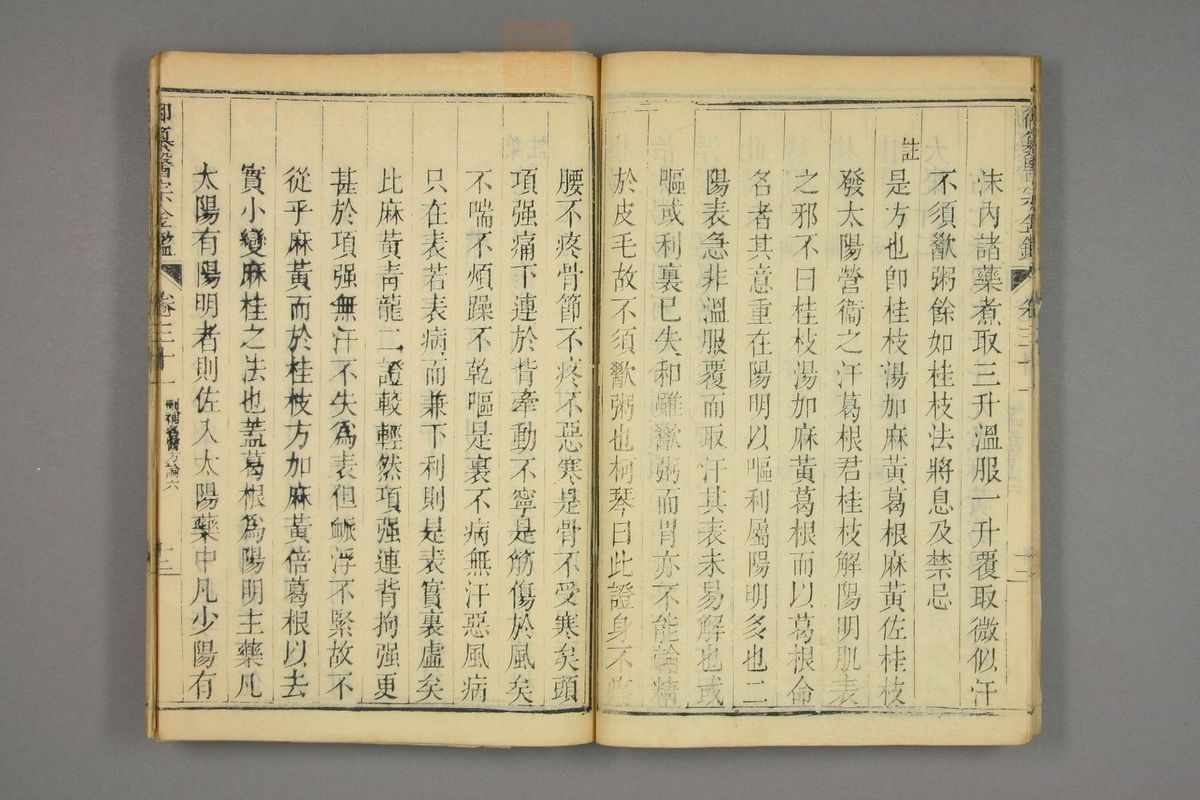 沫內諸藥煮取三升溫服一升覆取微似汗
不須歠粥餘如桂枝法將息及禁忌
註
是方也卽桂枝湯加麻黃葛根麻黃佐桂枝
發太陽營衛之汗葛根君桂枝解陽明肌表
之邪不曰桂枝湯加麻黃葛根而以葛根命
名者其意重在陽明以嘔利屬陽明多也二
陽表急非溫服覆而取汗其表未易解也或
嘔或利裏已失和雖歠粥而胃亦不能輸精
於皮毛故不須歠粥也柯琴曰此證身不疼
腰不疼骨節不疼不惡寒是骨不受寒矣頭
項强痛下連於背牽動不寧是筋傷於風矣
不喘不煩躁不乾嘔是裏不病無汗惡風病
只在表若表病而兼下利則是表實裏虛矣
比麻黃靑龍二證較輕然項强連背拘强更
甚於項强無汗不失爲表但脈浮不緊故不
從乎麻黃而於桂枝方加麻黃倍葛根以去
實小變麻桂之法也蓋葛根爲陽明主藥凡
太陽有陽明者則佐入太陽藥中凡少陽有
御纂醫宗金鑑
卷三十一
刪補名醫方論六
十三